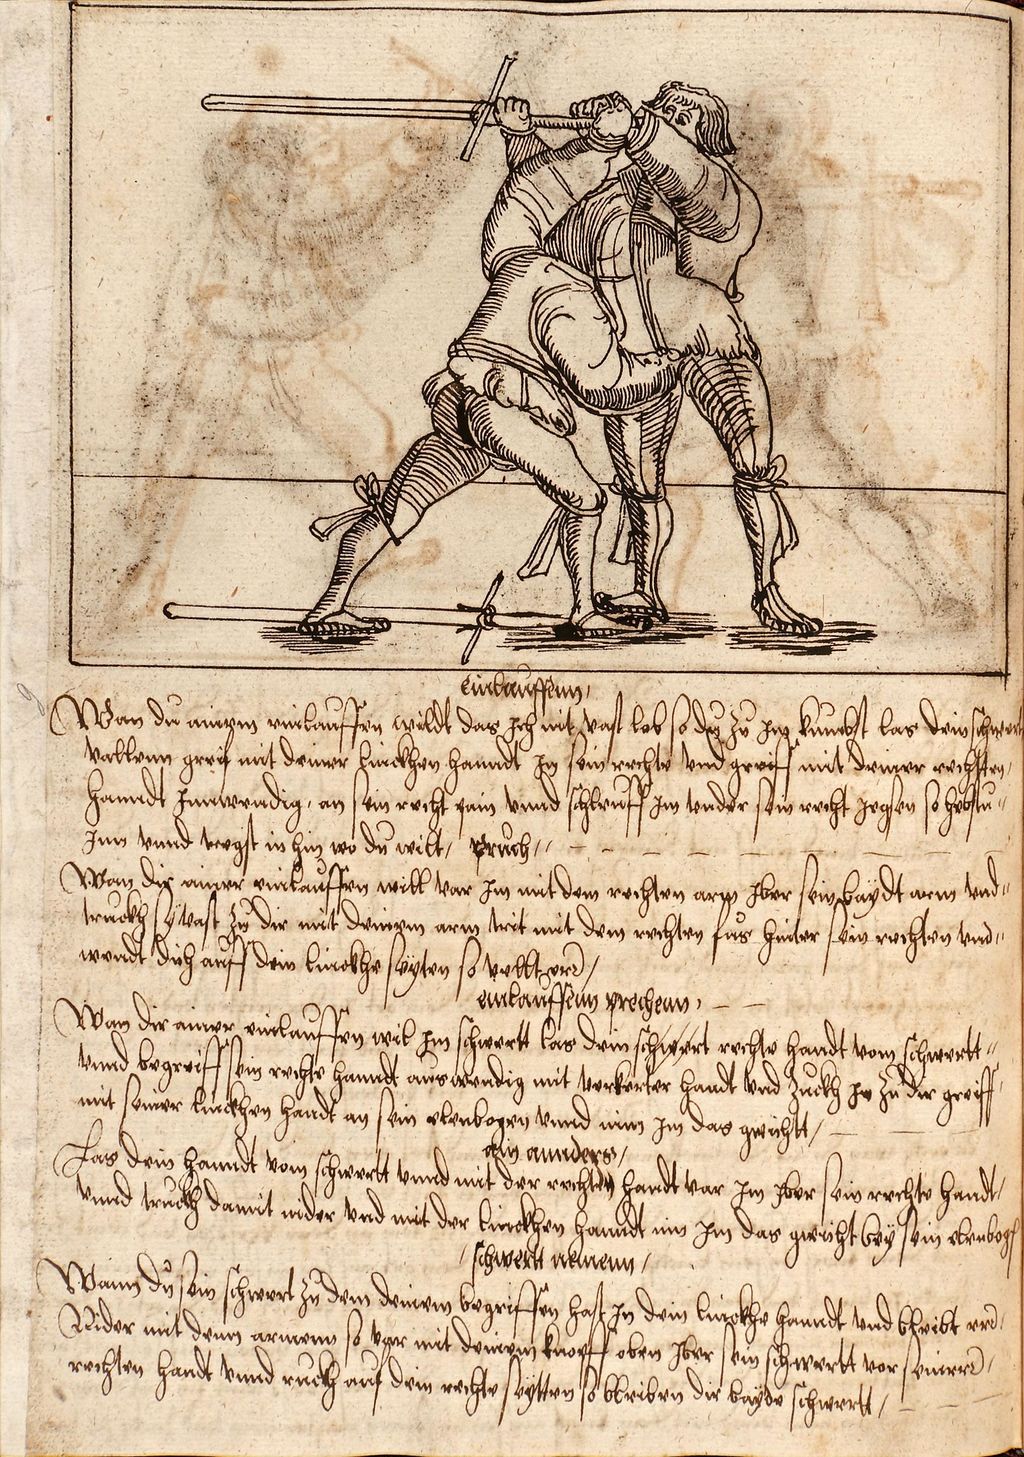 einlauffenn
Wan du ainem einlauffen wildt das Ich nit vast leb so du zu Im kumbst las dein schwert
vallenn greif mit deiner linckhen hanndt In sein rechte vnd greiff mit deiner rechtten
handt Innwendig an sein recht pain vnnd schleuff Im vnder sein recht so hebstu
Inn vnnd tregst in hin wo du wilt / Pruch
Wan dir ainer einlauffen will var Im mit dem rechten arm Iber sein baydt arm vnd
truckh sy vast zu dir mit deinem arm trit mit dem rechten fus hinter sein rechten vnd
wendt dich auff dein linckhe seyten so vellt er
einlauffenn prechenn
Wan dir ainer einlauffen wil Im schwertt las dein schwert rechte handt vom schwertt
vnnd begreiff sein rechte hanndt auswendig mit verkerter handt vnd zuckh In zu dir greiff
mit seiner linckhen handt an sein elenbogen vnnd nim Im das gwichtt /
ain annders /
Las dein hanndt vom schwertt vnnd mit der rechten handt var Im Iber sein rechte handt
vnnd truckh damit nider vnd mit der linckhen hanndt nim Im das gwicht bey sein elenbogen
/ schwertt nemenn /
Wann du sein schwert zu dem deinem begriffen hast In dein linckhe hanndt vnd bleibt er
Nider mit denn armenn so var mit deinem knopff oben Iber sein schwertt vor seiner
rechten handt vnnd ruckh auf dein rechte seytten so bleiben dir bayde schwertt /